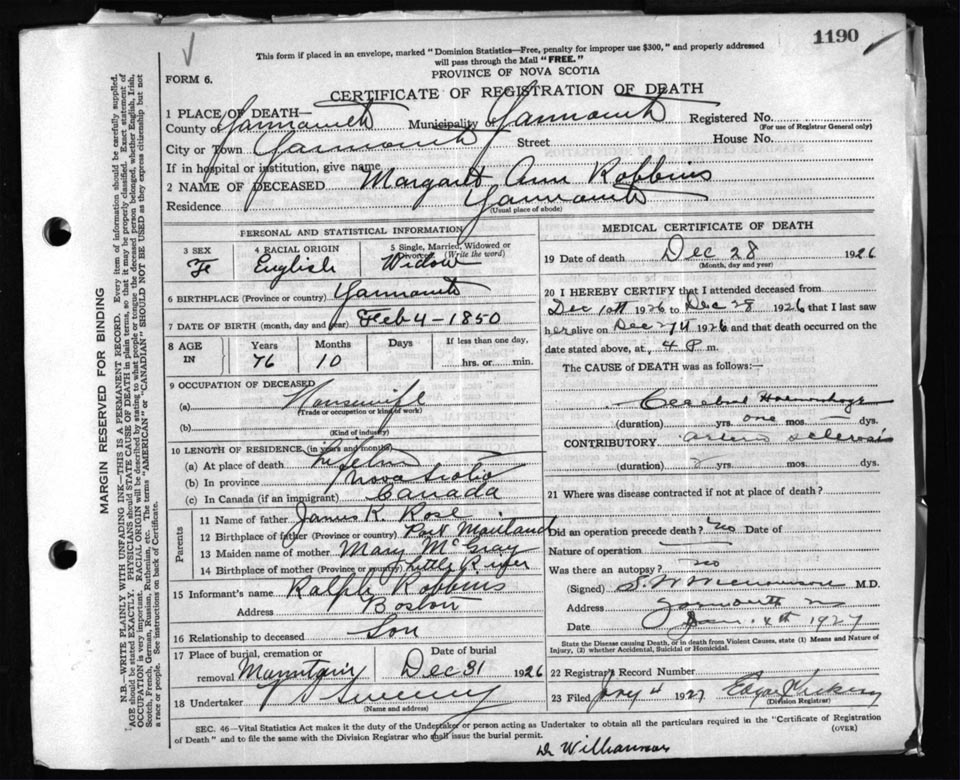 1190
This form if placed in an envelope, marked "Dominion Statistics—Free, penalty for improper use $300," and properly addressed
will pass through the Mail "FREE."
FORM 6.
PROVINCE OF NOVA SCOTIA
CERTIFICATE OF REGISTRATION OF DEATH
1 PLACE OF DEATH—
County of Yarmouth Municipality of Yarmouth Registered No.
(For use of Registrar General only)
City or Town Yarmouth Street House No.
If in hospital or institution, give name
2 NAME OF DECEASED Margaret Ann Robbins
Residence Yarmouth
(Usual place of abode)
PERSONAL AND STATISTICAL INFORMATION
3 SEX 4 RACIAL ORIGIN 5 Single, Married, Widowed or Divorced (Write the word)
Fe English Widow
6 BIRTHPLACE (Province or country) Yarmouth
7 DATE OF BIRTH (month, day and year) Feb 4 - 1850
8 AGE IN Years Months Days If less than one day,
76 10 hrs. or min.
9 OCCUPATION OF DECEASED
(a) Housewife
(Trade or occupation or kind of work)
(b)
(Kind of industry)
10 LENGTH OF RESIDENCE (in years and months)
(a) At place of death Life time
(b) In province Nova Scotia
(c) In Canada (if an immigrant) Canada
Parents
11 Name of father James K. Rose
12 Birthplace of father (Province or country) Port Maitland
13 Maiden name of mother Mary McGray
14 Birthplace of mother (Province or country) Little River
15 Informant's name Ralph Robbins
Address Boston
16 Relationship to deceased Son
17 Place of burial, cremation or Date of burial
removal Mountain Dec 31 1926
18 Undertaker Sweeny
(Name and address)
MEDICAL CERTIFICATE OF DEATH
19 Date of death Dec 28 1926
(Month, day and year)
20 I HEREBY CERTIFY that I attended deceased from
Dec 10th 1926 to Dec 28 1926 that I last saw
her alive on Dec 27th 1926 and that death occurred on the
date stated above, at, 4 P m.
The CAUSE of DEATH was as follows:—
Cerebral Haemorrhage
(duration) yrs. one mos. dys.
CONTRIBUTORY arterio sclerosis
(duration) yrs. mos. dys.
21 Where was disease contracted if not at place of death?
Did an operation precede death? no Date of
Nature of operation
Was there an autopsy? no
(Signed) S. W. Williamson M.D.
Address Yarmouth
Date Jan. 4th 1927
State the Disease causing Death, or in death from Violent Causes, state (1) Means and Nature of
Injury, (2) whether Accidental, Suicidal or Homicidal.
22 Registrary Record Number
23 Filed Jany 4 1927 Edgar
(Division Registrar)
SEC. 46—Vital Statistics Act makes it the duty of the Undertaker or person acting as Undertaker to obtain all the particulars required in the "Certificate of Registration
of Death" and to file the same with the Division Registrar who shall issue the burial permit. (OVER)
Dr Williamson
MARGIN RESERVED FOR BINDING
N.B.—WRITE PLAINLY WITH UNFADING INK—THIS IS A PERMANENT RECORD. Every item of information should be carefully supplied.
AGE should be stated EXACTLY. PHYSICIANS should STATE CAUSE OF DEATH in plain terms, so that it may be properly classified. Exact statement of
OCCUPATION is very important. RACIAL ORIGIN will be described by stating to what people or tongue the deceased person belonged, whether English, Irish,
Scotch, French, German, Russian, Ruthenian, etc. The terms "AMERICAN" or "CANADIAN" SHOULD NOT BE USED as they express citizenship but not
a race or people. See instructions on back of Certificate.